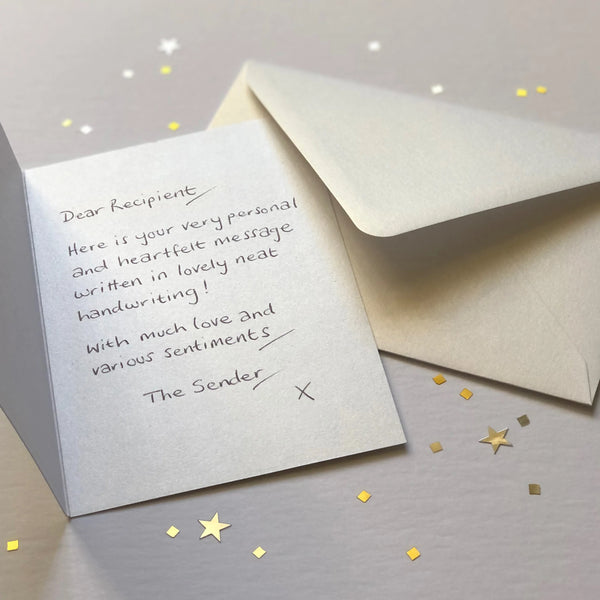 Dear Recipient
Here is your very personal
and heartfelt message
written in lovely neat
handwriting!
With much love and
various sentiments
The Sender
X